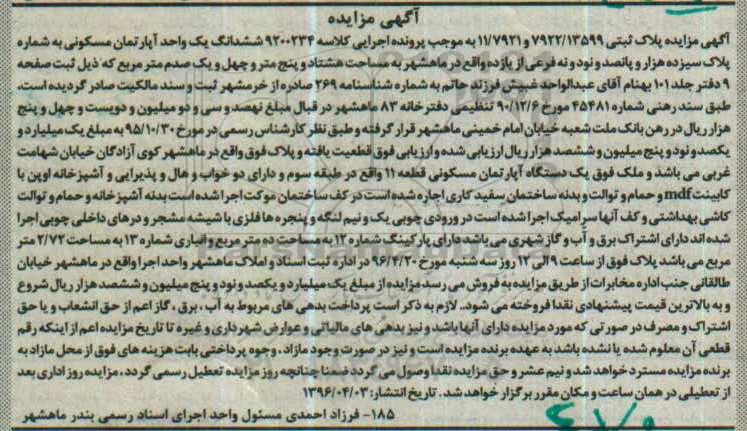 آگهی مزایده
آگهی مزایده پلاک ثبتی ۷۹۲۲/۱۳۵۹۹ و ۱۱/۷۹۲۱ به موجب پرونده اجرایی کلاسه ۹۲۰۰۲۳۴ ششدانگ یک واحد آپارتمان مسکونی به شماره
پلاک سیزده هزار و پانصد و نود و نه فرعی از یازده واقع در ماهشهر به مساحت هشتاد و پنج متر و چهل و یک صدم متر مربع که ذیل ثبت صفحه
۹ دفتر جلد ۱۰۱ بهنام آقای عبدالواحد غبیش فرزند حاتم به شماره شناسنامه ۲۶۹ صادره از خرمشهر ثبت و سند مالکیت صادر گردیده است،
طبق سند رهنی شماره ۴۵۴۸۱ مورخ ۹۰/۱۲/۶ تنظیمی دفترخانه ۸۳ ماهشهر در قبال مبلغ نهصد و سی و دو میلیون و دویست و چهل و پنج
هزار ریال در رهن بانک ملت شعبه خیابان امام خمینی ماهشهر قرار گرفته و طبق نظر کارشناس رسمی در مورخ ۹۵/۱۰/۳۰ به مبلغ یک میلیارد و
یکصد و نود و پنج میلیون و ششصد هزار ریال ارزیابی شده و ارزیابی فوق قطعیت یافته و پلاک فوق واقع در ماهشهر کوی آزادگان خیابان شهامت
غربی می باشد و ملک فوق یک دستگاه آپارتمان مسکونی قطعه ۱۱ واقع در طبقه سوم و دارای دو خواب و هال و پذیرایی و آشپزخانه اوپن با
کابینت mdf و حمام و توالت و بدنه ساختمان سفید کاری اجاره شده است در کف ساختمان موکت اجرا شده است بدنه آشپزخانه و حمام و توالت
کاشی بهداشتی و کف آنها سرامیک اجرا شده است در ورودی چوبی یک و نیم لنگه و پنجره ها فلزی با شیشه مشجر و درهای داخلی چوبی اجرا
شده اند دارای اشتراک برق و آب و گاز شهری می باشد دارای پارکینگ شماره ۱۲ به مساحت ده متر مربع و انباری شماره ۱۳ به مساحت ۲/۷۲ متر
مربع می باشد پلاک فوق از ساعت ۹ الی ۱۲ روز سه شنبه مورخ ۹۶/۴/۲۰ در اداره ثبت اسناد و املاک ماهشهر واحد اجرا واقع در ماهشهر خیابان
طالقانی جنب اداره مخابرات از طریق مزایده به فروش می رسد مزایده از مبلغ یک میلیارد و یکصد و نود و پنج میلیون و ششصد هزار ریال شروع
و به بالاترین قیمت پیشنهادی نقدا فروخته می شود.. لازم به ذکر است پرداخت بدهی های مربوط به آب، برق، گاز اعم از حق انشعاب و یا حق
اشتراک و مصرف در صورتی که مورد مزایده دارای آنها باشد و نیز بدهی های مالیاتی و عوارض شهرداری و غیره تا تاریخ مزایده اعم از اینکه رقم
قطعی آن معلوم شده یا نشده باشد به عهده برنده مزایده است و نیز در صورت وجود مازاد، وجوه پرداختی بابت هزینه های فوق از محل مازاد به
برنده مزایده مسترد خواهد شد و نیم عشر و حق مزایده نقدا وصول می گردد ضمنا چنانچه روز مزایده تعطیل رسمی گردد، مزایده روز اداری بعد
از تعطیلی در همان ساعت و مکان مقرر برگزار خواهد شد. تاریخ انتشار: ۱۳۹۶/۰۴/۰۳
۱۸۵- فرزاد احمدی مسئول واحد اجرای اسناد رسمی بندر ماهشهر